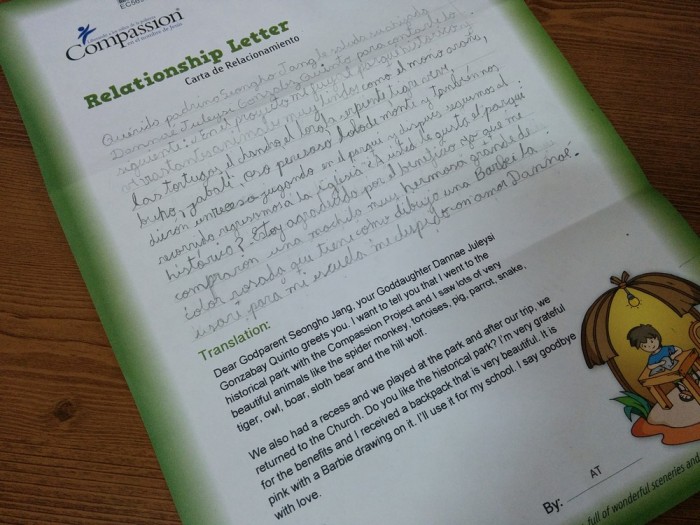 Compassion
en el nombre de Jesús
Relationship Letter
Carta de Relacionamiento
Querido padrino Seongho Jang le saluda su ahijada
Dannae Juleysi Gonzabay Quinto para contarle lo
siguiente: En el proyecto me fui al parque histórico y
vi bastante animales muy lindos como el mono araña,
las tortugas, el chancho, el loro, serpiente, tigre,
buho, jabalí, oso perezoso, lobo de monte y también nos
dieron un receso jugando en el parque y después seguimos el
recorrido regresamos a la iglesia ¿a usted le gusta el parque
histórico? Estoy agradecida por el beneficio ya que me
compraron una mochila muy hermosa grande de
color rosada que tiene como dibujo una Barbei la
usaré para mi escuela me despido con amor Dannae.
Translation:
Dear Godparent Seongho Jang, your Goddaughter Dannae Juleysi
Gonzabay Quinto greets you. I want to tell you that I went to the
historical park with the Compassion Project and I saw lots of very
beautiful animals like the spider monkey, tortoises, pig, parrot, snake,
tiger, owl, boar, sloth bear and the hill wolf.
We also had a recess and we played at the park and after our trip, we
returned to the Church. Do you like the historical park? I'm very grateful
for the benefits and I received a backpack that is very beautiful. It is
pink with a Barbie drawing on it. I'll use it for my school. I say goodbye
with love.
By: AT
full of wonderful sceneries and